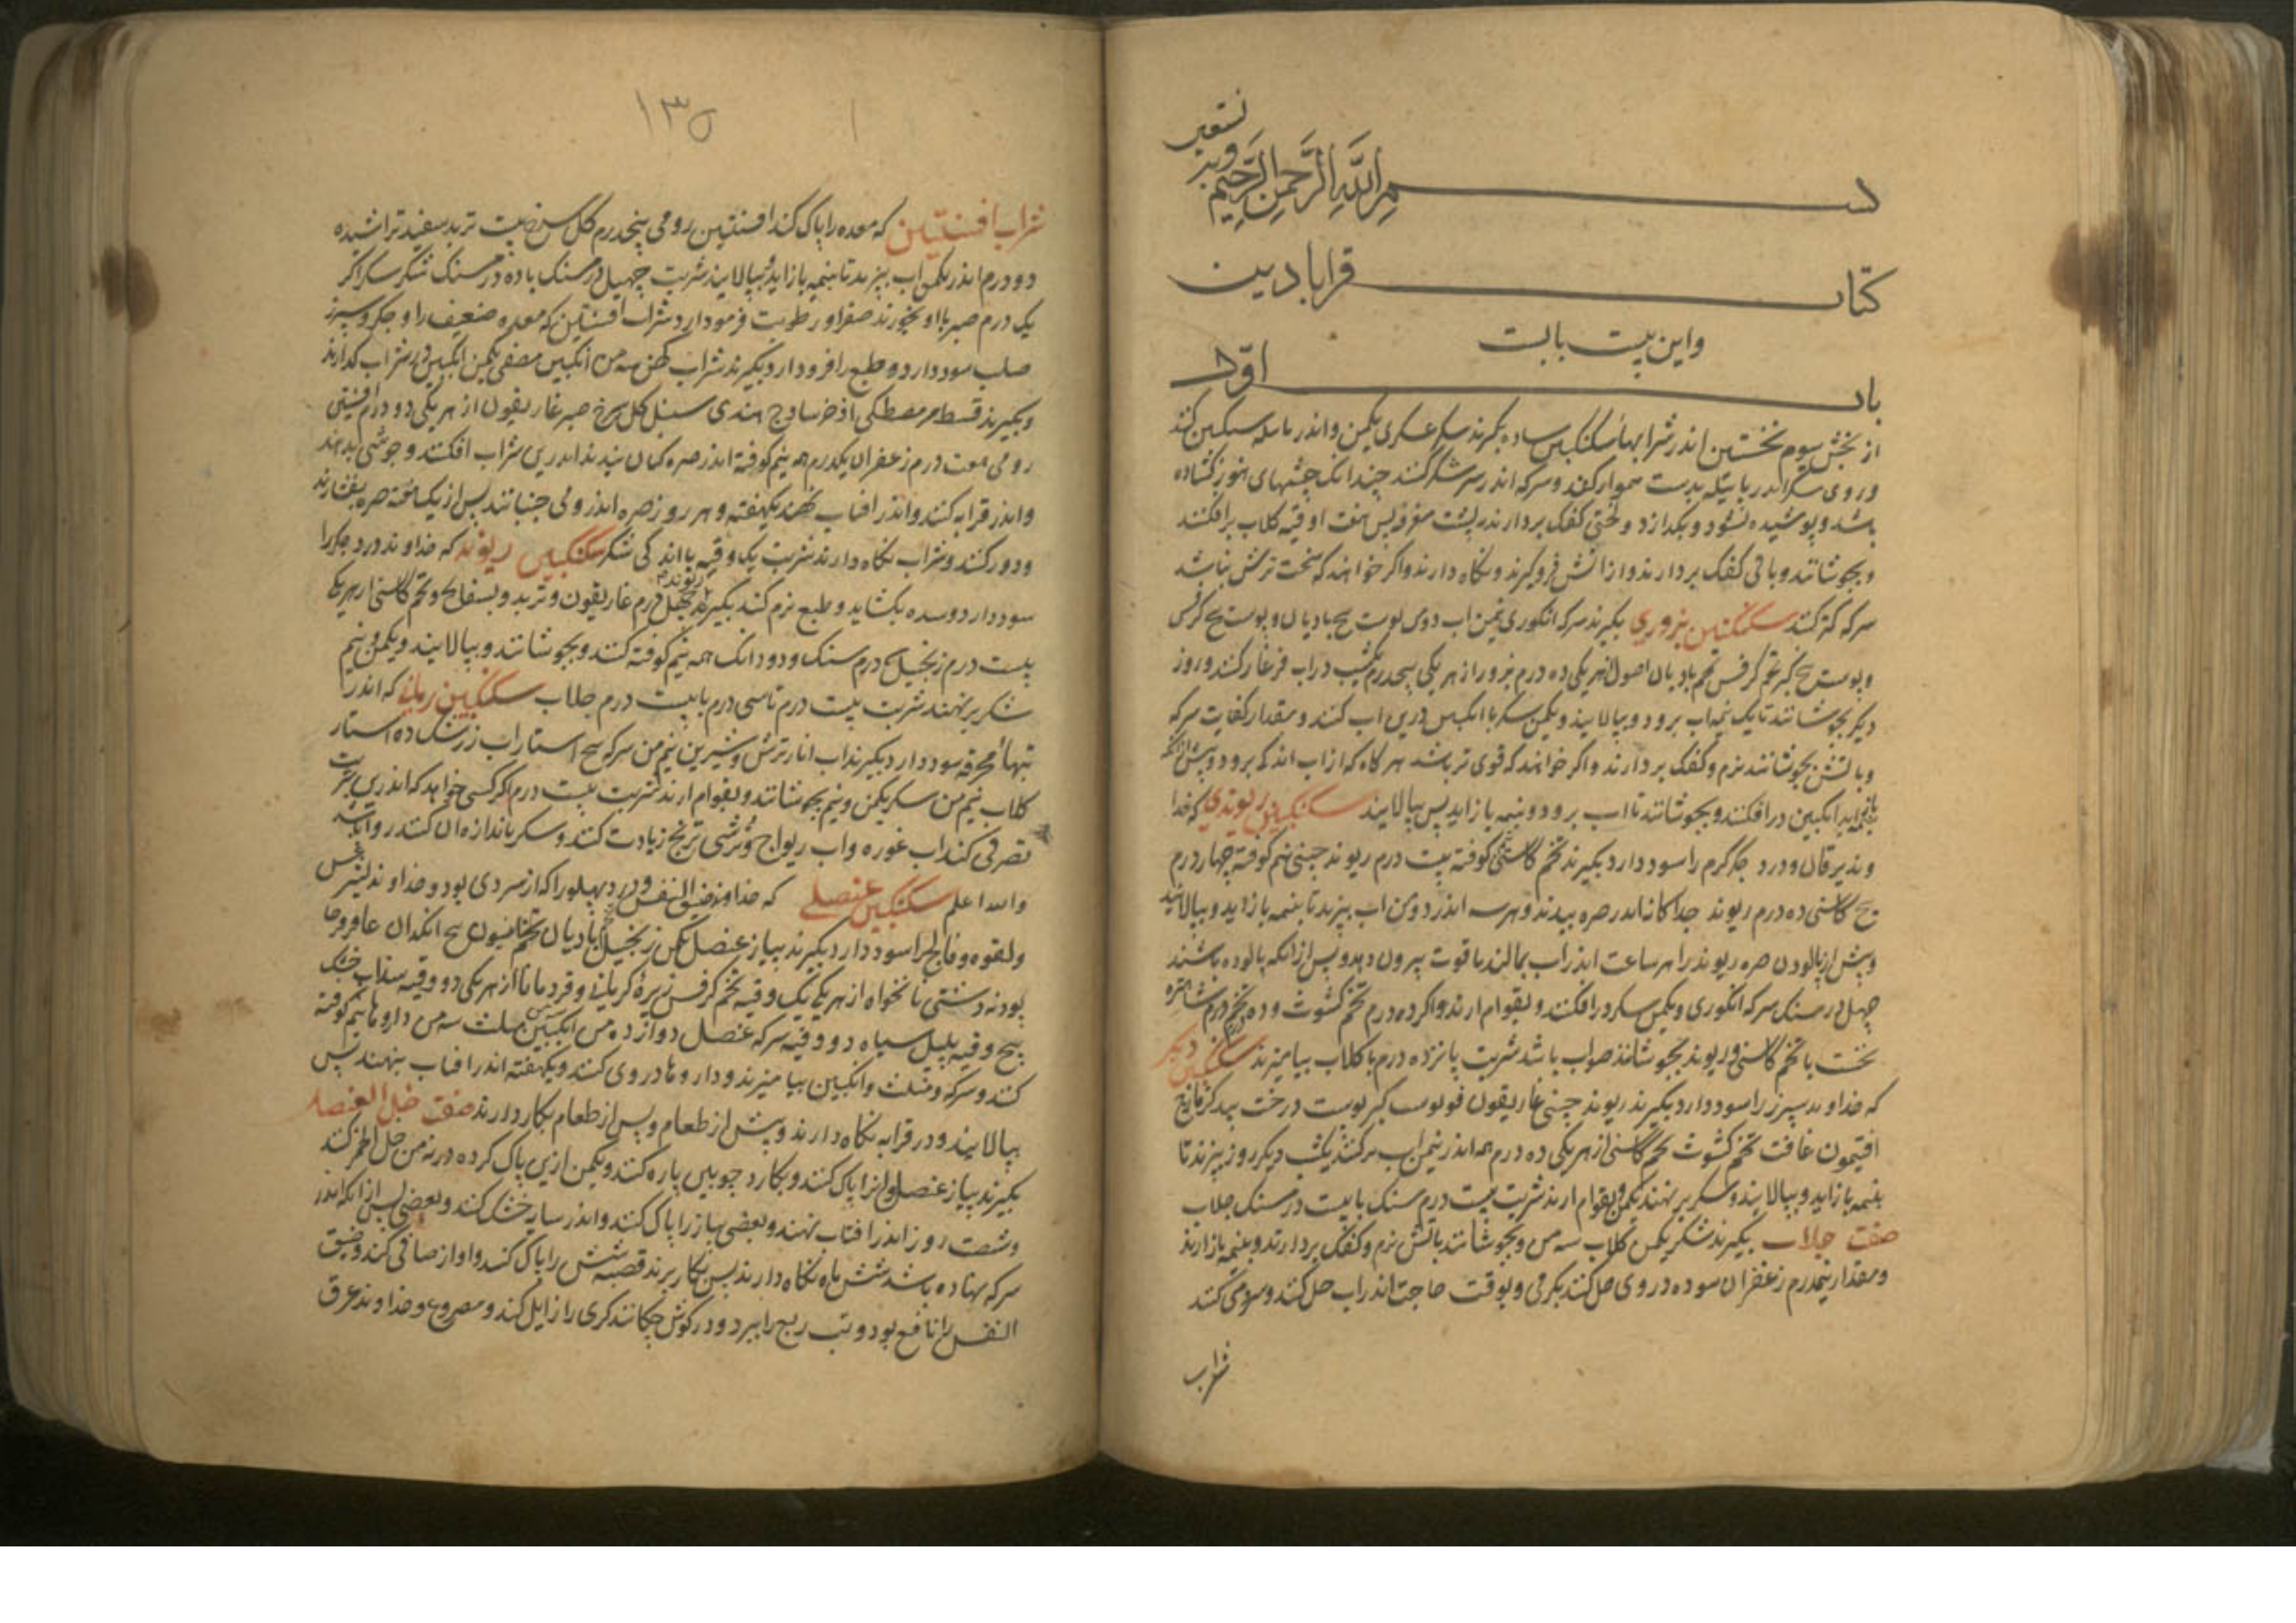 بسم الله الرحمن الرحیم
وبه نستعین
کتاب قرابادین
واین بیست بابست
باب اول
از بخش سوم نخستین اندر شرابها سکنکبین ساده بکیرند سکر عسکری یکمن واندر کنند
وروی سکر اندر بدست هموار کنند وسرکه اندر سر شکر کنند چندانک چشمهای هنوز کشاده
باشد وپوشیده نشود وبکدازد ولختی کفک بردارند پشت مغرفه پس هفت اوقیه کلاب برافکنند
وبجوشانند وباقی کفک بردارند واز اتش فروکیرند ونکاه دارند واکر خواهند که سخت ترش نباشد
سرکه کمتر کنند سکنکبین بزوری بکیرند سرکه انکوری یکمن اب دو من پوست بیخ بادیان وپوست بیخ کرفس
وپوست بیخ کبر تخم کرفس تخم بادیان اصول از هریکی ده درم بزور از هریکی پنجدرم یکشب در اب فرغار کنند وروز
دیکر بجوشانند تا یک نیمه اب برود وبپالایند ویکمن سکر با انکبین درین اب کنند ومقدار کفایت سرکه
وباتش بجوشانند نرم وکفک بردارند واکر خواهند که قوی تر باشد هرکاه که از اب اندکی برود وپیش ازانکه
بنیمه اید انکبین درافکنند وبجوشانند تا اب برود وبنیمه بازاید پس بپالایند سکنکبین ریوندی که خدا
وند یرقان ودرد جکر کرم را سود دارد بکیرند تخم کاسنی کوفته بیست درم ریوند چینی نیم کوفته چهار درم
بیخ کاسنی ده درم ریوند جداکانه اندر صره بندند وهرسه اندر دو من اب بپزند تا بنیمه بازاید وبپالایند
وپیش از پالودن صره ریوند را هر ساعت اندر اب بمالند تا قوت بیرون دهد وپس ازانکه پالوده باشند
چهل درمسنک سرکه انکوری ویکمن سکر درافکنند وبقوام ارند واکر ده درم تخم کشوث وده پنج درم شاهتره
نخست با تخم کاسنی وریوند بجوشانند صواب باشد شربت پانزده درم با کلاب بیامیزند سکنکبین دیکر
که خداوند سپرز را سود دارد بکیرند ریوند چینی غاریقون فو پوست کبر پوست درخت بید کزمازج
افتیمون غافت تخم کشوث تخم کاسنی از هریکی ده درم همه اندر نیمن اب ترکنند یکشب دیکر روز بپزند تا
بنیمه بازاید وبپالایند وسکر برنهند یکمن وبقوام ارند شربت بیست درم سنک با بیست درمسنک جلاب
صفت جلاب بکیرند شکر یکمن کلاب سه من وبجوشانند باتش نرم وکفک بردارند وبنیمه بازارند
ومقدار نیمدرم زعفران سوده در وی حل کنند بکرمی وبوقت حاجت اندر اب حل کنند وسومی کنند
شراب
۱۳۵
شراب افسنتین که معده را پاک کند افسنتین رومی پنجدرم کل سرخ بیست تربد سفید تراشیده
دو درم اندر یکمن اب بپزند تا بنیمه بازاید وبپالایند شربت چهل درمسنک با ده درمسنک شکر سکر اکر
یک درم صبر با او بخورند صفرا ورطوبت فرود ارد شراب افسنتین که معده ضعیف را وجکر وسپرز
صلب سود دارد وطبع را فرود ارد بکیرند شراب کهن سه من انکبین مصفی یکمن انکبین در شراب کدازند
وبکیرند قسط مر مصطکی اذخر ساذج هندی سنبل کل سرخ صبر غاریقون از هریکی دو درم افسنتین
رومی هفت درم زعفران یکدرم همه نیم کوفته اندر صره کتان بندند اندرین شراب افکنند وجوشی بدهند
واندر قرابه کنند واندر افتاب نهند یکهفته وهر روز صره اندر وی جنبانند پس از یکهفته صره بفشارند
ودور کنند وشراب نکاه دارند شربت یک وقیه با اندکی شکر سکنکبین ریوند که خداوند درد جکر را
سود دارد وسده بکشاید وطبع نرم کند بکیرند ریوند چهل درم غاریقون وتربد وبسفایج وتخم کاسنی از هریکی
بیست درم زنجبیل پنج درم سنک ودودانک همه نیم کوفته کنند وبجوشانند وبپالایند ویکمن ونیم
شکر برنهند شربت بیست درم تا سی درم با بیست درم جلاب سکنکبین رمانی که اندر
تبهاء محرقه سود دارد بکیرند اب انار ترش وشیرین نیم من سرکه پنج استار اب زرشک ده استار
کلاب نیم من سکر یکمن ونیم بجوشانند وبقوام ارند شربت بیست درم اکر کسی خواهد که اندرین شربت
تصرفی کند اب غوره واب ریواج وترشی ترنج زیادت کند وسکر باندازه ان کنند روا باشد
والله اعلم سکنکبین عنصلی که خداوند ضیق النفس ودرد پهلو را که از سردی بود وخداوند لیثرغس
ولقوه وفالج را سود دارد بکیرند پیاز عنصل یکمن زنجبیل بادیان تخم انیسون بیخ انکدان عاقرقرحا
پودنه دشتی نانخواه از هریکی یک وقیه تخم کرفس زیره کرمانی وقردمانا از هریکی دو وقیه سذاب خشک
پنج وقیه پلپل سیاه دو وقیه سرکه عنصل دوازده من انکبین مثلث سه من داروها نیم کوفته
کنند وسرکه ومثلث وانکبین بیامیزند وداروها در وی کنند ویکهفته اندر افتاب بنهند پس
بپالایند ودر قرابه نکاه دارند وپیش از طعام وپس از طعام بکار دارند صفت خل العنصل
بکیرند پیاز عنصل وانرا پاک کنند وبکارد چوبین پاره کنند ویکمن ازین پاک کرده در نه من خل الخمر کنند
وشصت روز اندر افتاب نهند وبعضی پیاز را پاک کنند واندر سایه خشک کنند وبعضی پس ازانکه اندر
سرکه نهاده باشد شش ماه نکاه دارند پس بکار برند قصبه شش را پاک کند واواز صافی کند وضیق
النفس را نافع بود وتب ربع را ببرد ودر کوش چکانند کری را زایل کند ومصروع وخداوند عرق